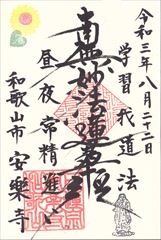 令和三年八月二十二日
学習我道法
南無妙法蓮華経
昼夜常精進
和歌山市 安樂寺